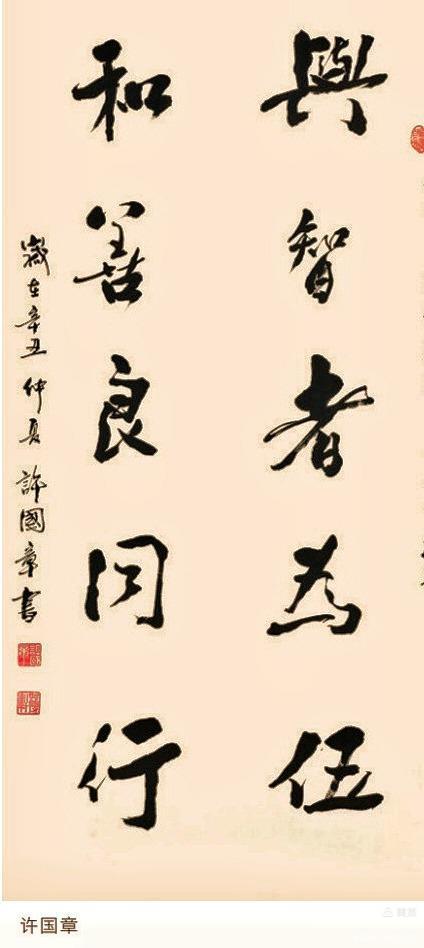 與智者為伍
和善良同行
歲在辛丑仲夏許國章書
许国章